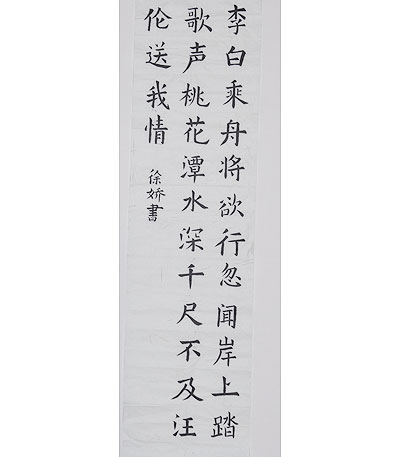 李白乘舟将欲行忽闻岸上踏
歌声桃花潭水深千尺不及汪
伦送我情
徐娇書